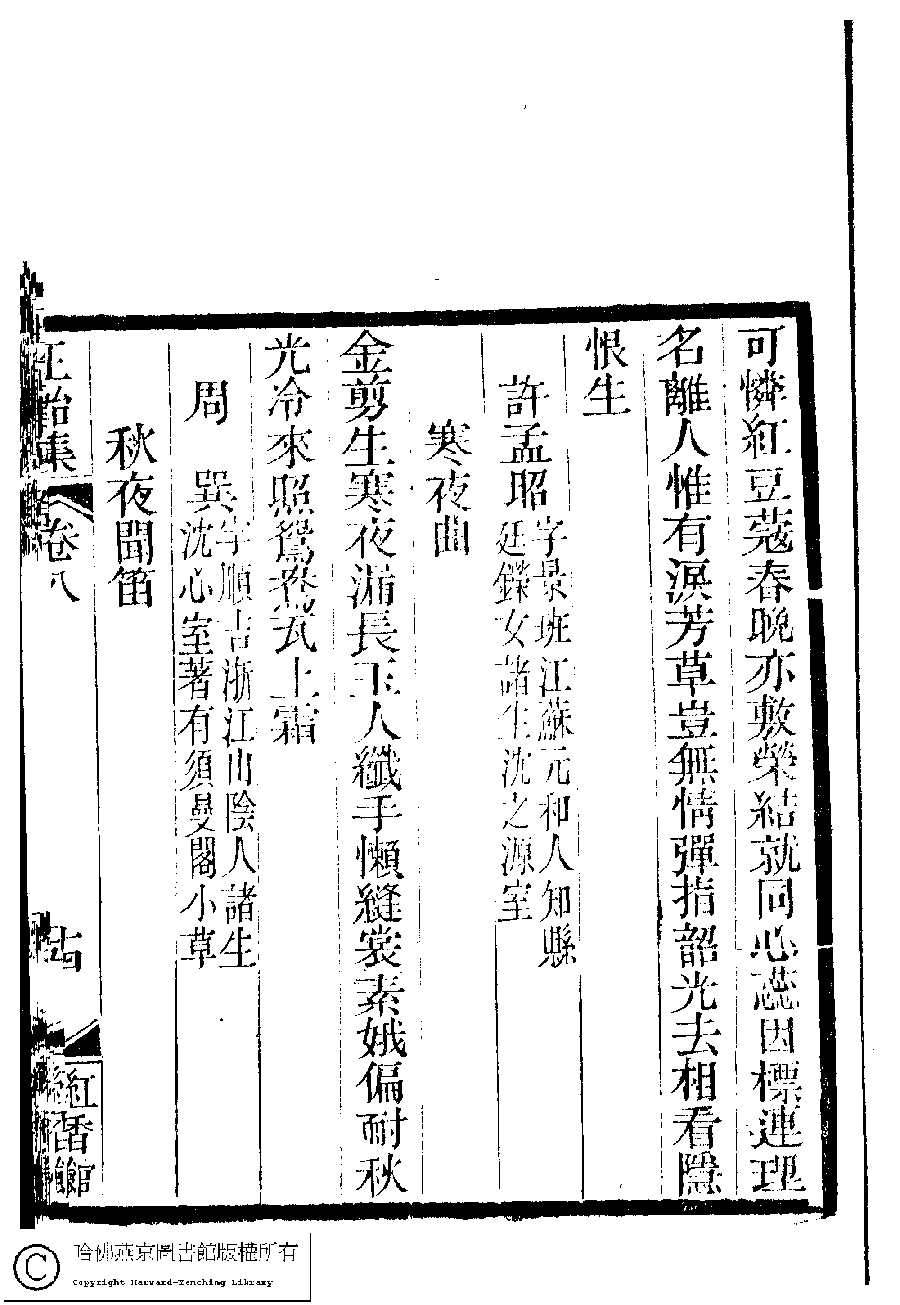 可憐紅豆蔻春晚亦敷榮結就同心蕊因標連理
名離人惟有淚芳草豈無情彈指韶光去相看隱
恨生
許孟昭
字景班江蘇元和人知縣
廷鑅女諸生沈之源室
寒夜曲
金剪生寒夜漏長玉人纖手懶縫裳素娥偏耐秋
光冷來照鴛鴦瓦上霜
周 巽
字順吉浙江山陰人諸生
沈心室著有須曼閣小草
秋夜聞笛
正始集 卷八
紅香館
哈佛燕京圖書館版權所有
Copyright Harvard-Yenching Library